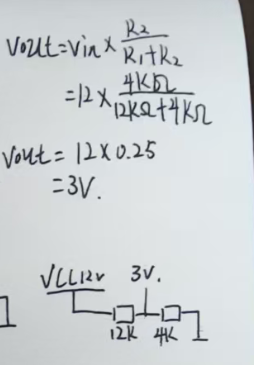 Vout=Vin×R2/R1+R2
=12×4KΩ/12KΩ+4KΩ
Vout=12×0.25
=3V.
VCC12V 3V.
12K 4K